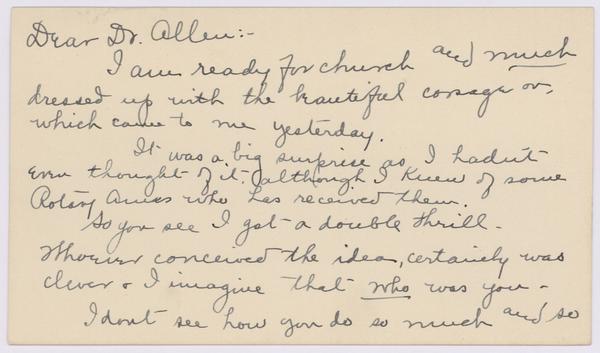 Dear Dr. Allen:-
I am ready for church and much
dressed up with the beautiful corsage on,
which came to me yesterday.
It was a big surprise as I hadn't
even thought of it although I knew of some
Rotary Annes who has received them.
So you see I got a double thrill -
Whoever conceived the idea, certainly was
clever & I imagine that who was you -
I don't see how you do so much and so